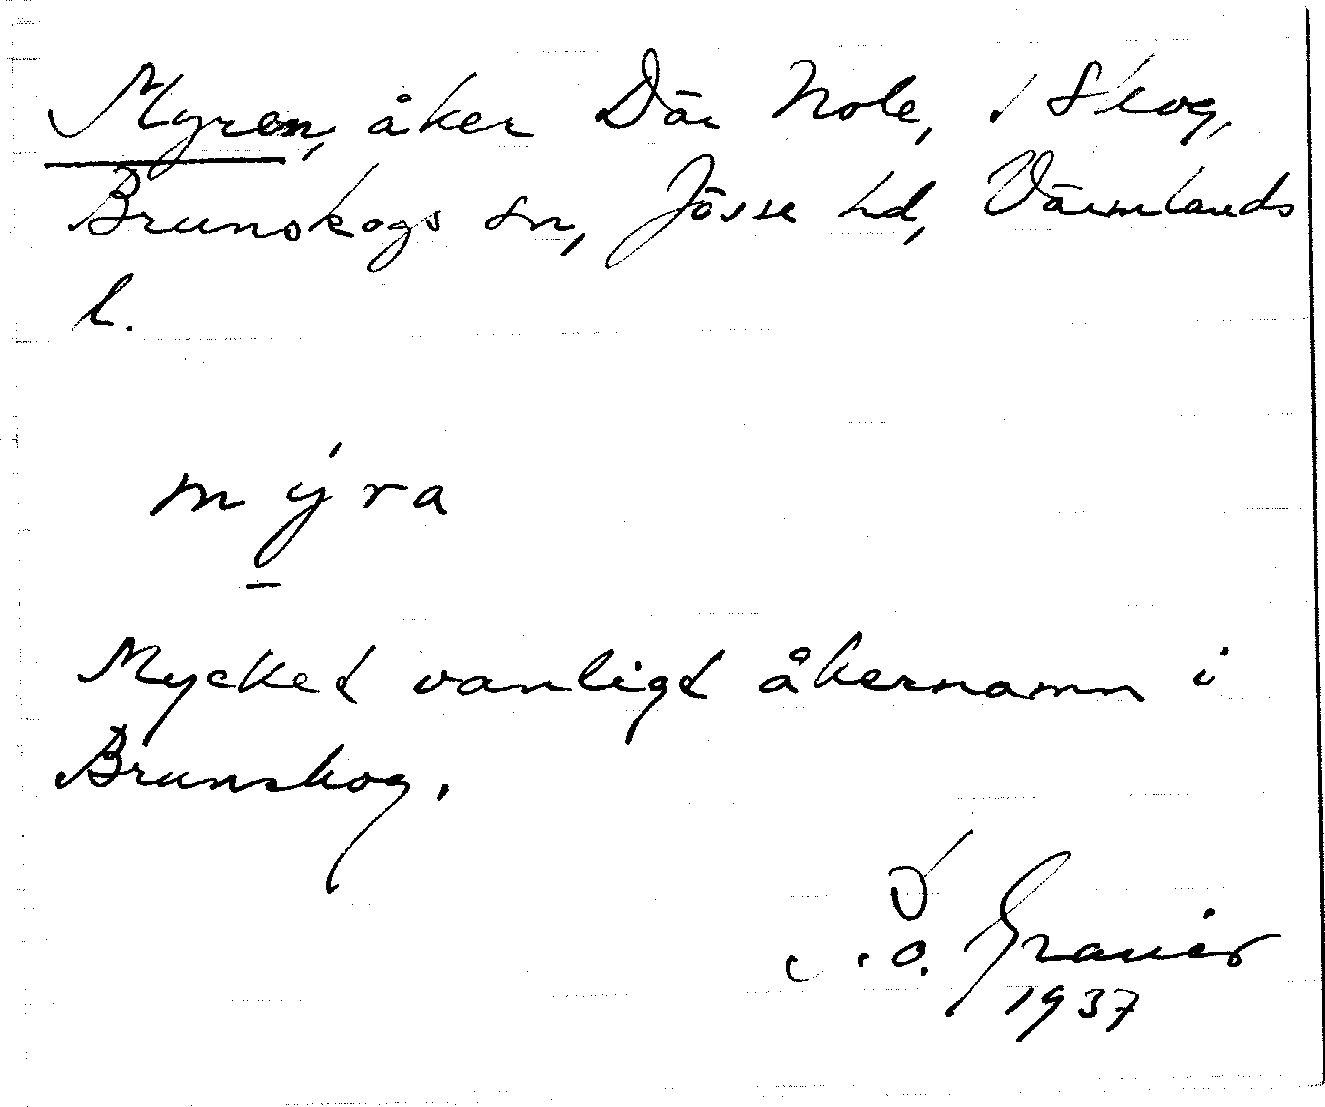 Myren, åker Där Nole, i Skog,
Brunskogs sn, Jösse hd, Värmlands
l.
mýra
Mycket vanligt åkernamn i
Brunskog.
S. O. Granér
1937